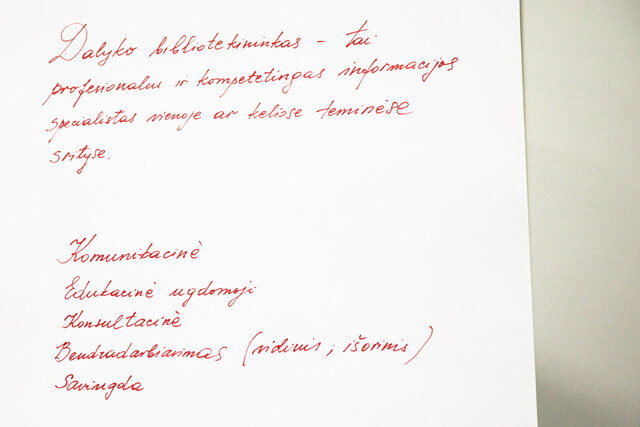 Dalyko bibliotekininkas – tai
profesionalus ir kompetetingas informacijos
specialistas vienoje ar keliose teminėse
srityse.
Komunikacinė
Edukacinė ugdomoji
Konsultacinė
Bendradarbiavimas (vidinis; išorinis)
Savirgda